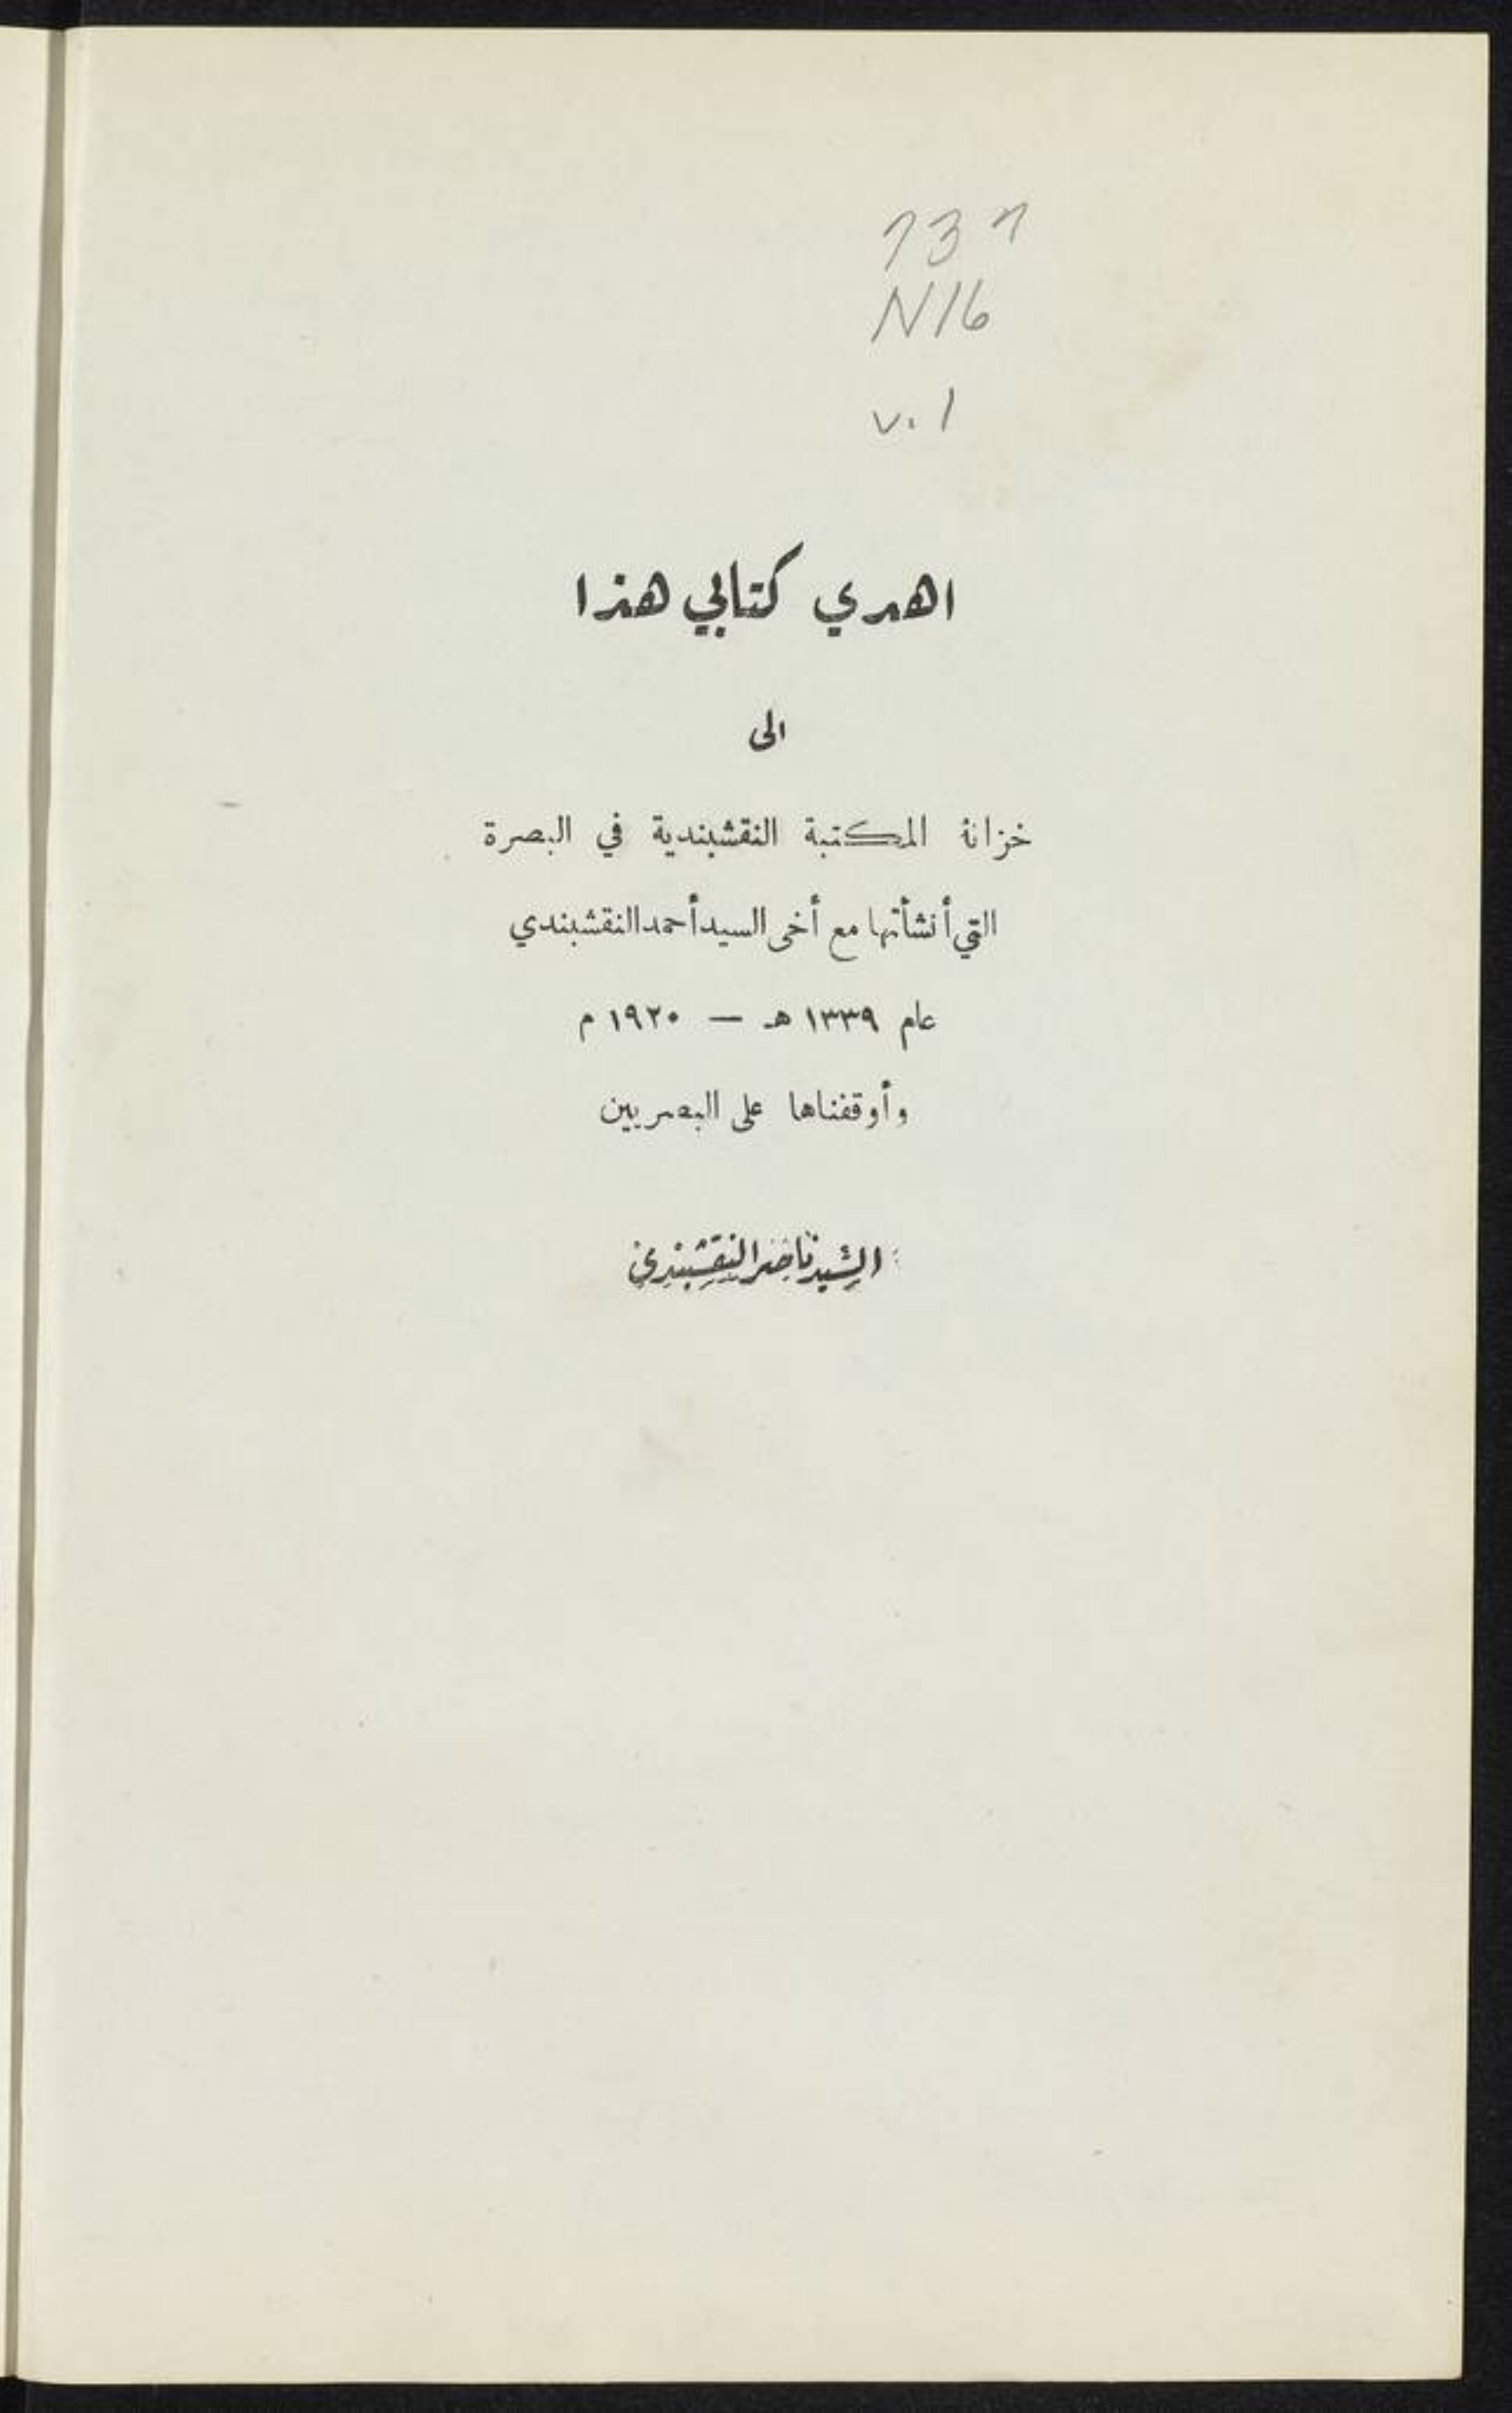 737
N16
v. 1
اهدي كتابي هذا
الى
خزانة المكتبة النقشبندية في البصرة
التي أنشأتها مع أخي السيد أحمد النقشبندي
عام ١٣٣٩ هـ — ١٩٢٠ م
وأوقفناها على البصريين
السيد ناصر النقشبندي